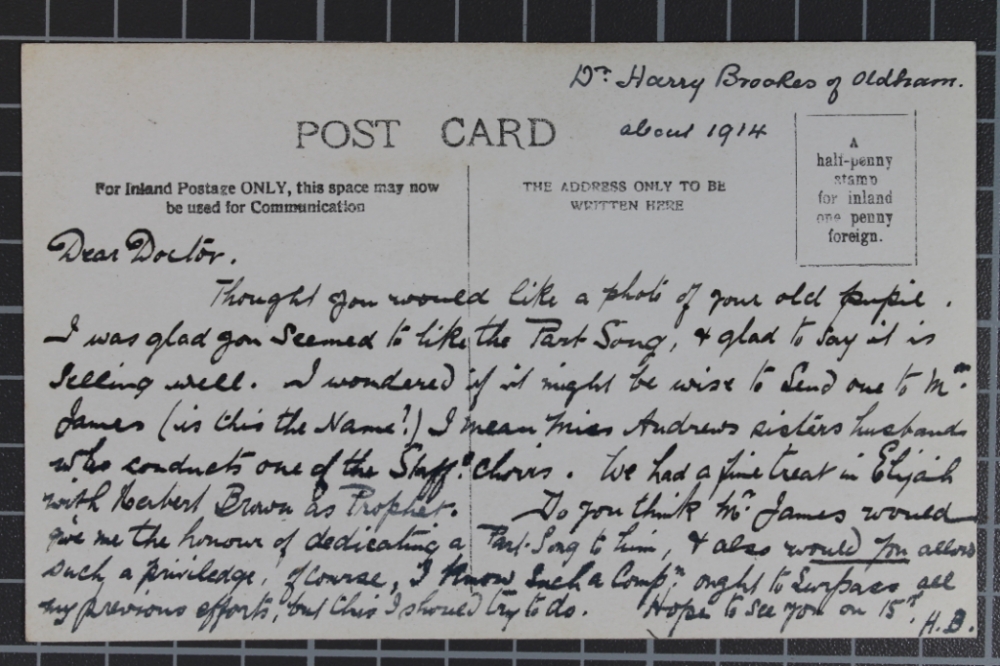 Dr. Harry Brookes of Oldham.
about 1914
POST CARD
A
half-penny
stamp
for inland
one penny
foreign.
For Inland Postage ONLY, this space may now
be used for Communication
THE ADDRESS ONLY TO BE
WRITTEN HERE
Dear Doctor.
Thought you would like a photo of your old pupil.
I was glad you seemed to like the Part Song, & glad to say it is
selling well. I wondered if it might be wise to send one to Mr.
James (is this the Name?) I mean Miss Andrews sisters husband
who conducts one of the Staff. choirs. We had a fine treat in Elijah
with Herbert Brown as Prophet. Do you think Mr. James would
give me the honour of dedicating a Part-Song to him, & also would you allow
such a priviledge, of course, I know such a Compn. ought to surpass all
my previous efforts, but this I should try to do. Hope to see you on 15th. H.B.